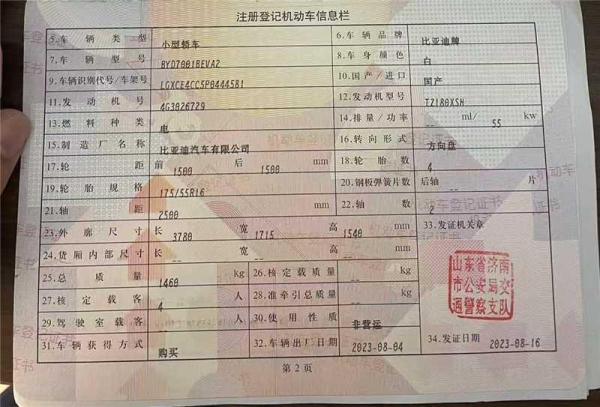 注册登记机动车信息栏
5.车辆类型 小型轿车 6.车辆品牌 比亚迪牌
7.车辆型号 BYD7001BEVA2 8.车身颜色 白
9.车辆识别代号/车架号 LGXCE4CC5P0444581 10.国产/进口 国产
11.发动机号 4G3026729 12.发动机型号 TZ180XSH
13.燃料种类 电 14.排量/功率 -- ml/ 55 kw
15.制造厂名称 比亚迪汽车有限公司 16.转向形式 方向盘
17.轮距 前 1500 后 1500 mm 18.轮胎数 4
19.轮胎规格 175/55R16 20.钢板弹簧片数 后轴 -- 片
21.轴距 2500 mm 22.轴数 2
23.外廓尺寸 长 3780 宽 1715 高 1540 mm 33.发证机关章
24.货厢内部尺寸 长 -- 宽 -- 高 -- mm
25.总质量 1460 kg 26.核定载质量 -- kg
27.核定载客 4 人 28.准牵引总质量 -- kg
29.驾驶室载客 -- 人 30.使用性质 非营运
31.车辆获得方式 购买 32.车辆出厂日期 2023-08-04 34.发证日期 2023-08-16
山东省济南
市公安局交
通警察支队
第2页
机动车登记证书